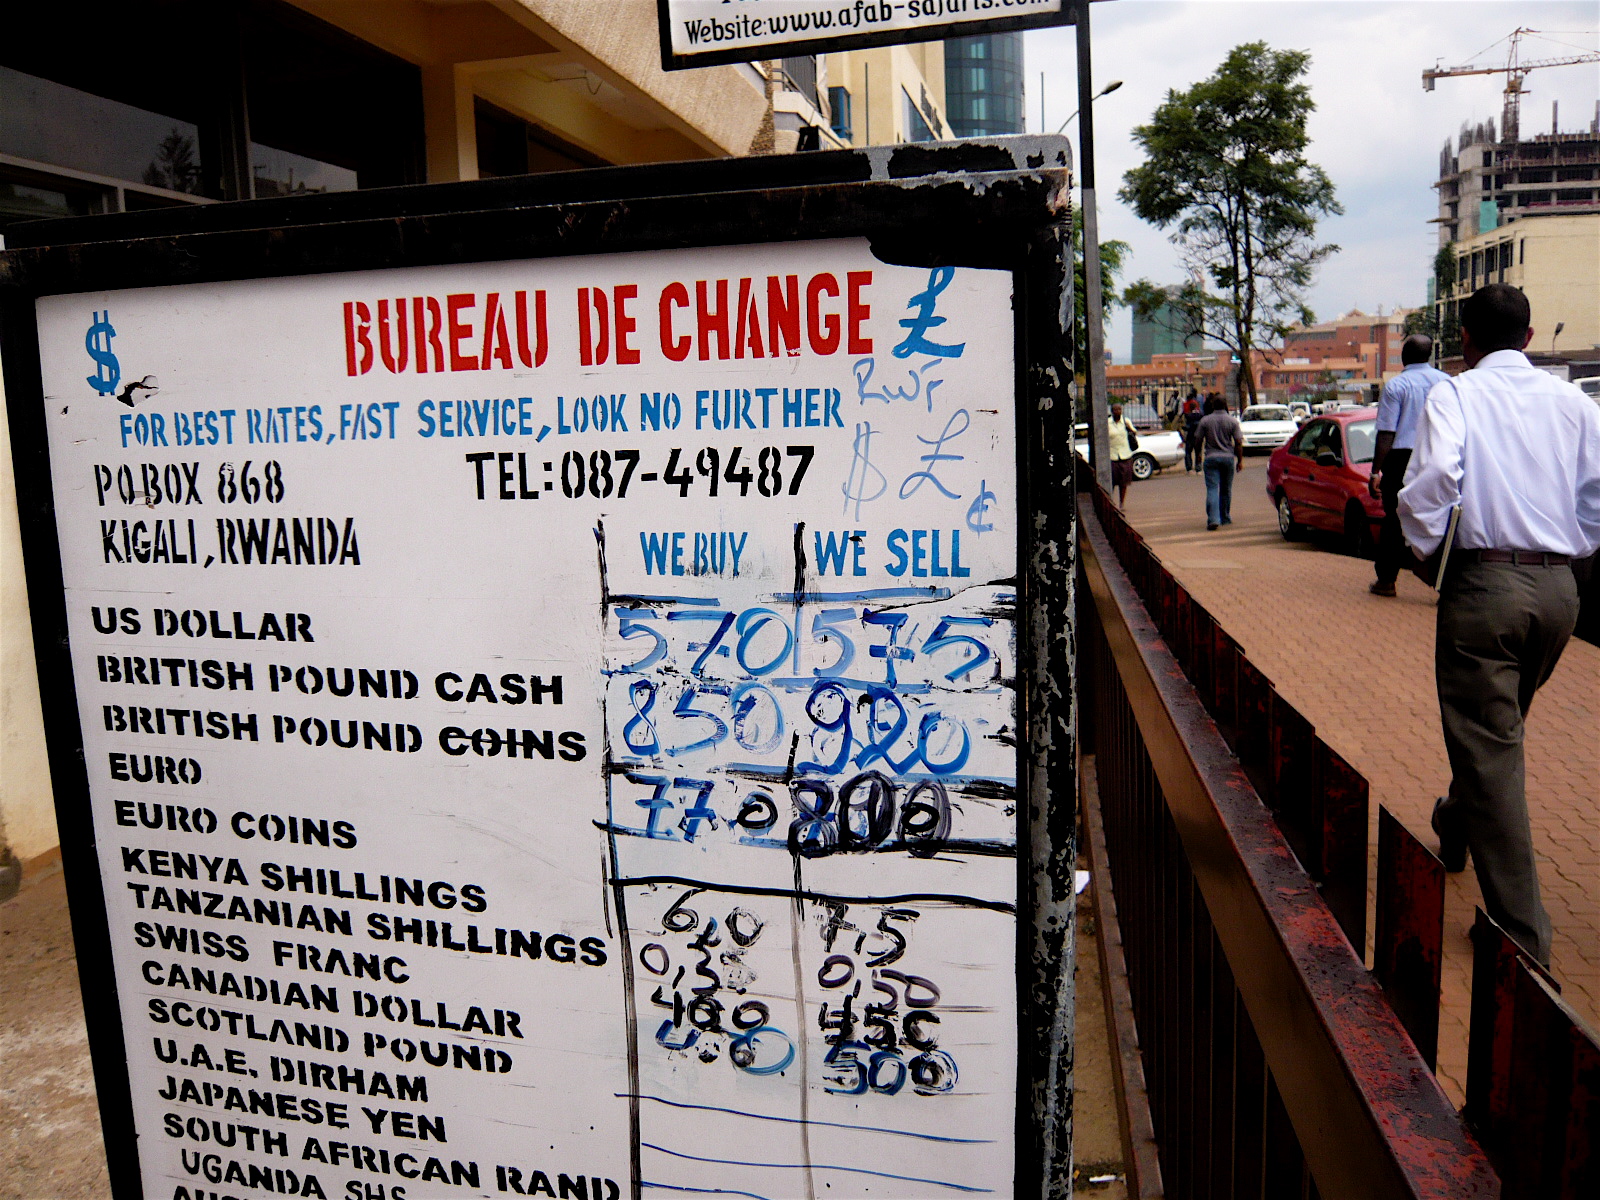 Website:www.afab-safaris.com
$ BUREAU DE CHANGE £
RWF
FOR BEST RATES, FAST SERVICE, LOOK NO FURTHER
P.O.BOX 868 TEL:087-49487 $ £ ¢
KIGALI, RWANDA
WE BUY WE SELL
US DOLLAR 570 575
BRITISH POUND CASH 850 920
BRITISH POUND COINS
EURO 770 800
EURO COINS
KENYA SHILLINGS 6,0 7,5
TANZANIAN SHILLINGS 0,50
SWISS FRANC 400 450
CANADIAN DOLLAR 500
SCOTLAND POUND
U.A.E. DIRHAM
JAPANESE YEN
SOUTH AFRICAN RAND
UGANDA SHS